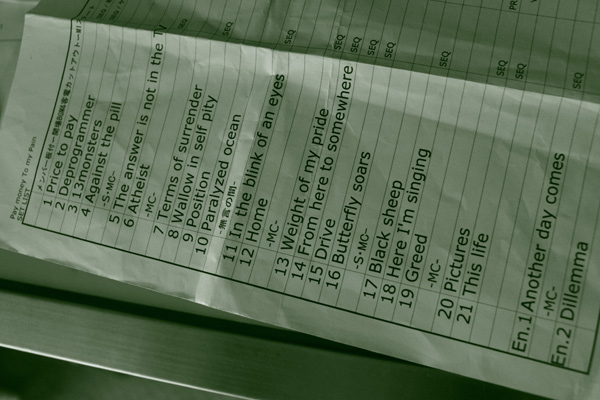 Pay money To my Pain
SET LIST
1 Price to pay
2 Deprogrammer
3 13monsters
4 Against the pill
-S・MC-
5 The answer is not in the TV
6 Atheist
-MC-
7 Terms of surrender
8 Wallow in self pity
9 Position
10 Paralyzed ocean
-無言の間-
11 In the blink of an eyes
12 Home
-MC-
13 Weight of my pride
14 From here to somewhere
15 Drive
16 Butterfly soars
-S・MC-
17 Black sheep
18 Here I'm singing
19 Greed
-MC-
20 Pictures
21 This life
En.1 Another day comes
-MC-
En.2 Dillemma
SEQ
SEQ
SEQ
SEQ
SEQ
SEQ
SEQ
SEQ
SEQ
SEQ